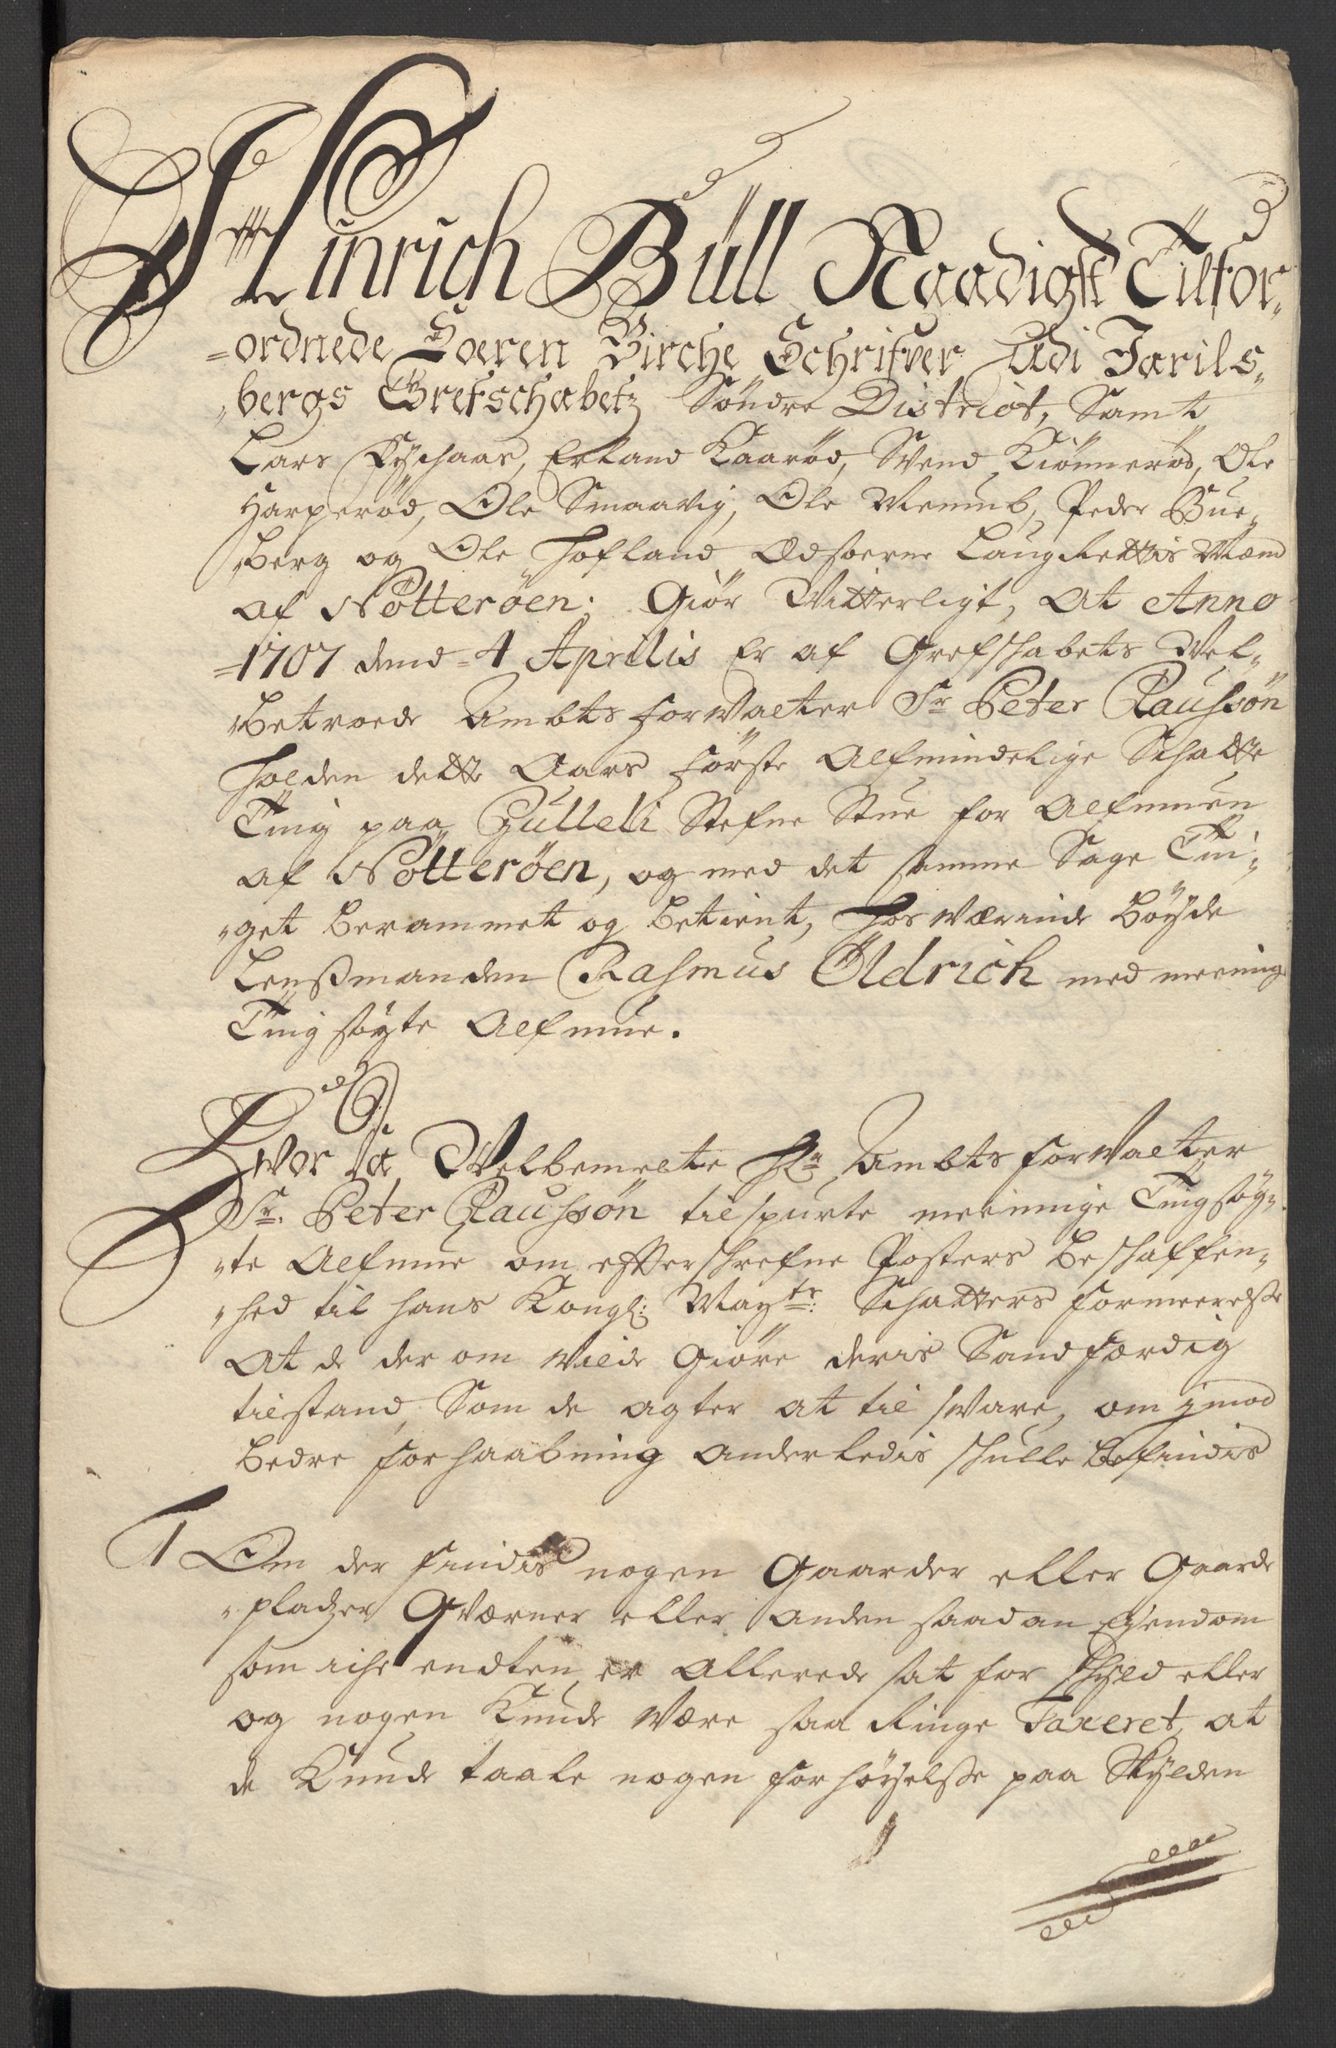 Hinrich Büll Naadigst Tilfor-
-ordnede Soeren Birche Schrifver Udi Jarils-
bergs Grefschabetz Söndre District, Samt
Lars Ryehaas, Erland Kaaröd, Svend Kiönneröd, Ole
Harperöd, Ole Smaavig, Ole Meumb, Peder Bue-
berg og Ole Hofland Edsoerne Laug Rettis Mænd
af Nötteröen; Giör Vitterligt, At Anno
1707 dend 4 Aprilis Er af Grefschabets Vel-
Betroede Ambts forvalter Sr Peter Raufsön
Holden dette Aars förste Alfmindelige Schatte
Ting paa Gullelli Stefne Stue for Alfmuen
af Nötteröen, og med det samme Sage Tin-
get berammet og betient, Hos Værinde böyde
Lenßmanden Rasmus Oldrich med meenige
Ting söyte Alfmue.
Hvor da Velbemelte Hr Ambts forvalter
Sr. Peter Raufsön tilspurte meenige Tingsöy-
-te Alfmue om efterschrefne Posters beschaffen-
-hed til hans Kongl: Mayts: Schatters formeerelse
At de der om vilde Giöre deris Sandfærdig
tilstand, Som de agter at til svare, om imod
bedre forhaabning anderledis schulle befindis
1 Om der findis nogen Gaarder eller Gaarde
pladzer Qværner eller anden saadan Eyendom
som iche endten er allerede sat for Schyld eller
og nogen Kunde være saa Ringe Taxeret, at
de Kunde taale nogen forhöyelse paa Skylden